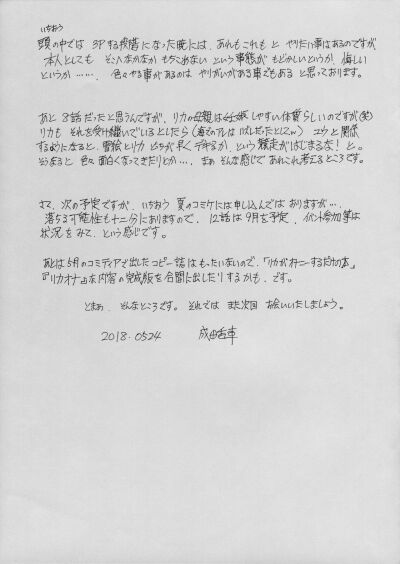 いちおう
頭の中では 3Pする段階になった暁には、あれもこれも と やりたい事はあるのですが
本人としても そこへなかなか もちこめない という事態が もどかしいというか、悔しい
というか……。 色々やる事があるのは やりがいがある事でもある と思っております。
あと 8話だったと思うんですが、リカの母親は妊娠しやすい体質らしいのですが(笑)
リカも それを受け継いでいるとしたら ユウと関係
するようになると、雪絵とリカ どちらが早くデキるか、という競走がはじまるな！と。
そうなると 色々面白くなってきたりとか…。まぁ そんな感じで あれこれ考えるところです。
さて、次の予定ですが、いちおう 夏のコミケには申し込んではおりますが…、
落ちる可能性も十二分にありますので、12話は9月を予定、イベント参加等は
状況をみて、という感じです。
あとは5月のコミティアで出したコピー誌はもったいないので、「リカがオナニーするだけの本」
『リカオナ』な内容の完成版を合間に出したりするかも、です。
とまぁ、そんなところです。それでは また次回 お会いいたしましょう。
2018.0524 成田香車